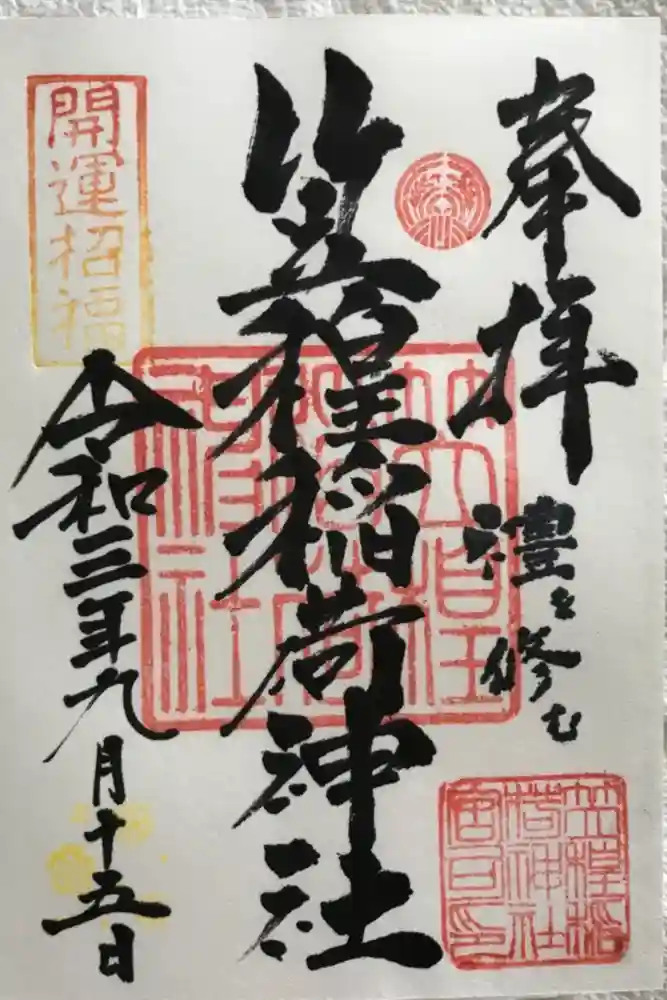 奉拝
禮を修む
笠䅣稲荷神社
令和三年九月十五日
開運招福
笠䅣
稲荷
神社
笠䅣稲
荷神社
宮司印